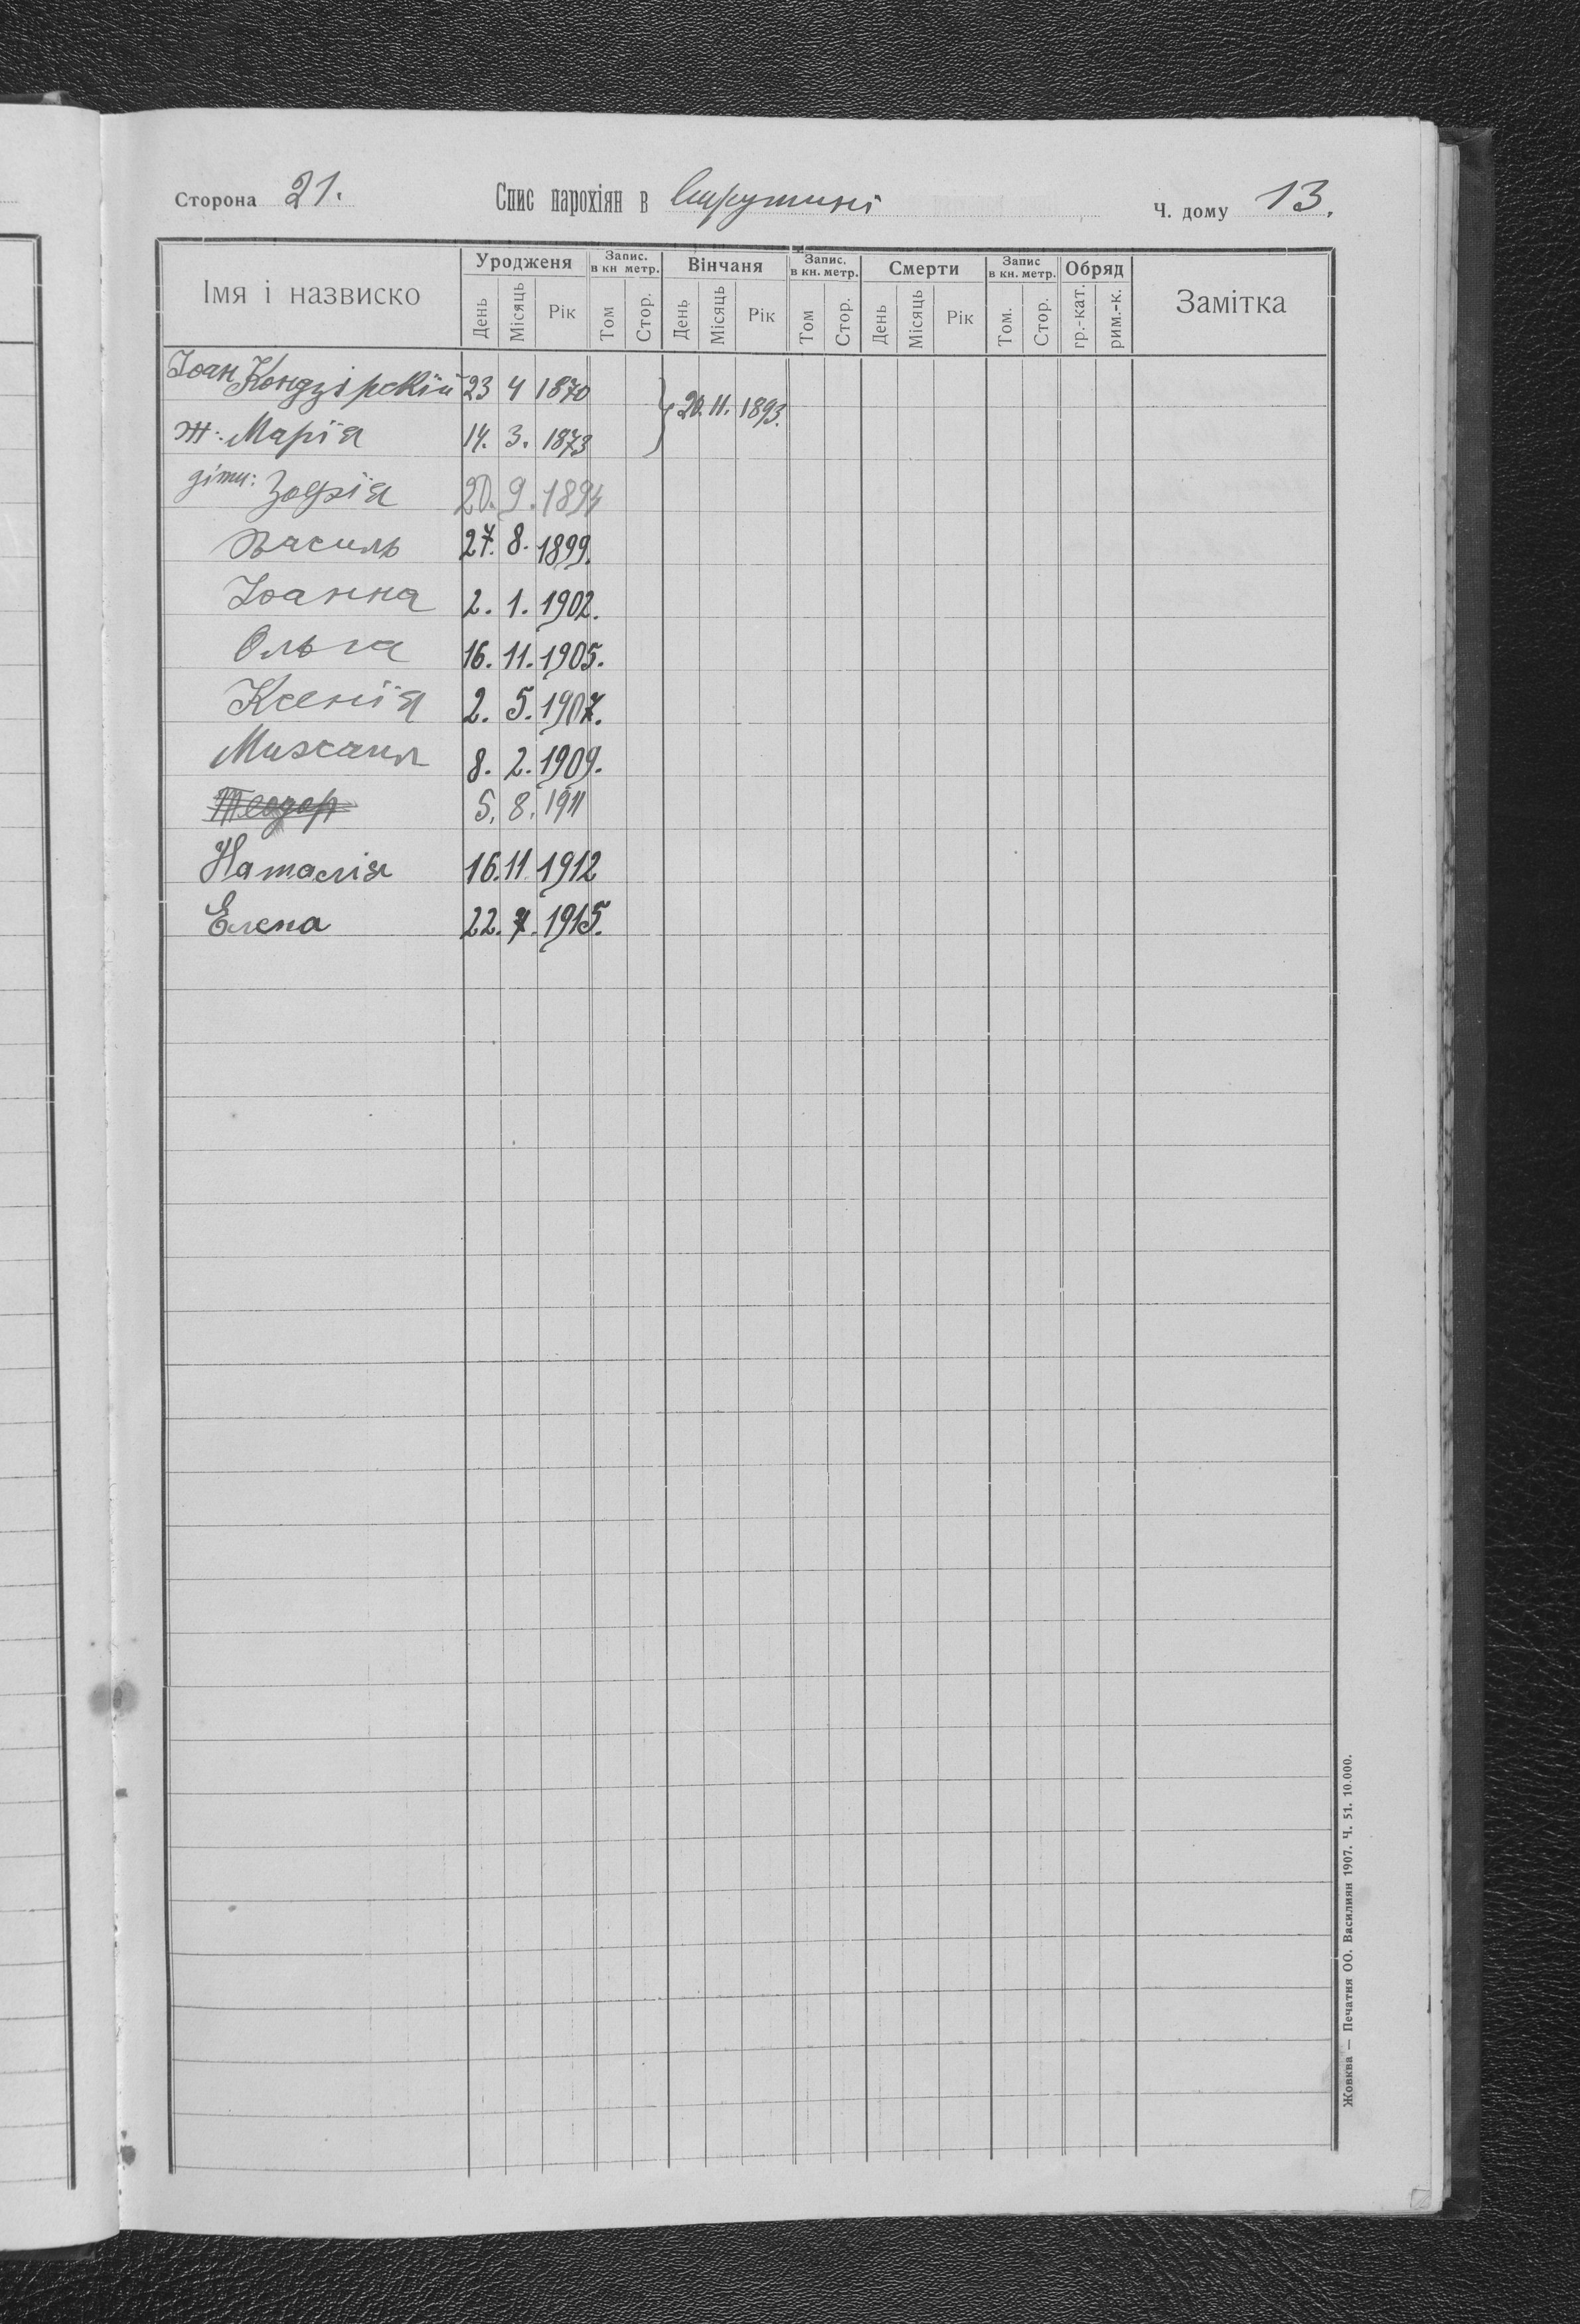 Сторона 21. Спис парохіян в Струтині Ч. дому 13.
Імя і назвиско Уродженя Запис. в кн метр. Вінчаня Запис. в кн. метр. Смерти Запис в кн. метр. Обряд Замітка
День Місяць Рік Том Стор. День Місяць Рік Том Стор. День Місяць Рік Том. Стор. гр.-кат. рим.-к.
Іоан Кондзірскій 23 4 1870 } 20. 11. 1893.
ж: Марія 14. 3. 1873
діти: Зофія 20. 9. 1894
Василь 27. 8. 1899.
Іоанна 2. 1. 1902.
Ольга 16. 11. 1905.
Ксенія 2. 5. 1907.
Михаил 8. 2. 1909.
Теодор 5. 8. 1911
Наталія 16. 11 1912
Елена 22. 7. 1915.
Жовква — Печатня ОО. Василиян 1907. Ч. 51. 10.000.